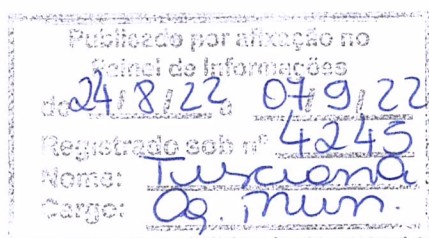 Publicado por afixação no
Painel de Informações
de 24/8/22 a 07/9/22
Registrado sob nº 4245
Nome: Tusciana
Cargo: Ag. mun.